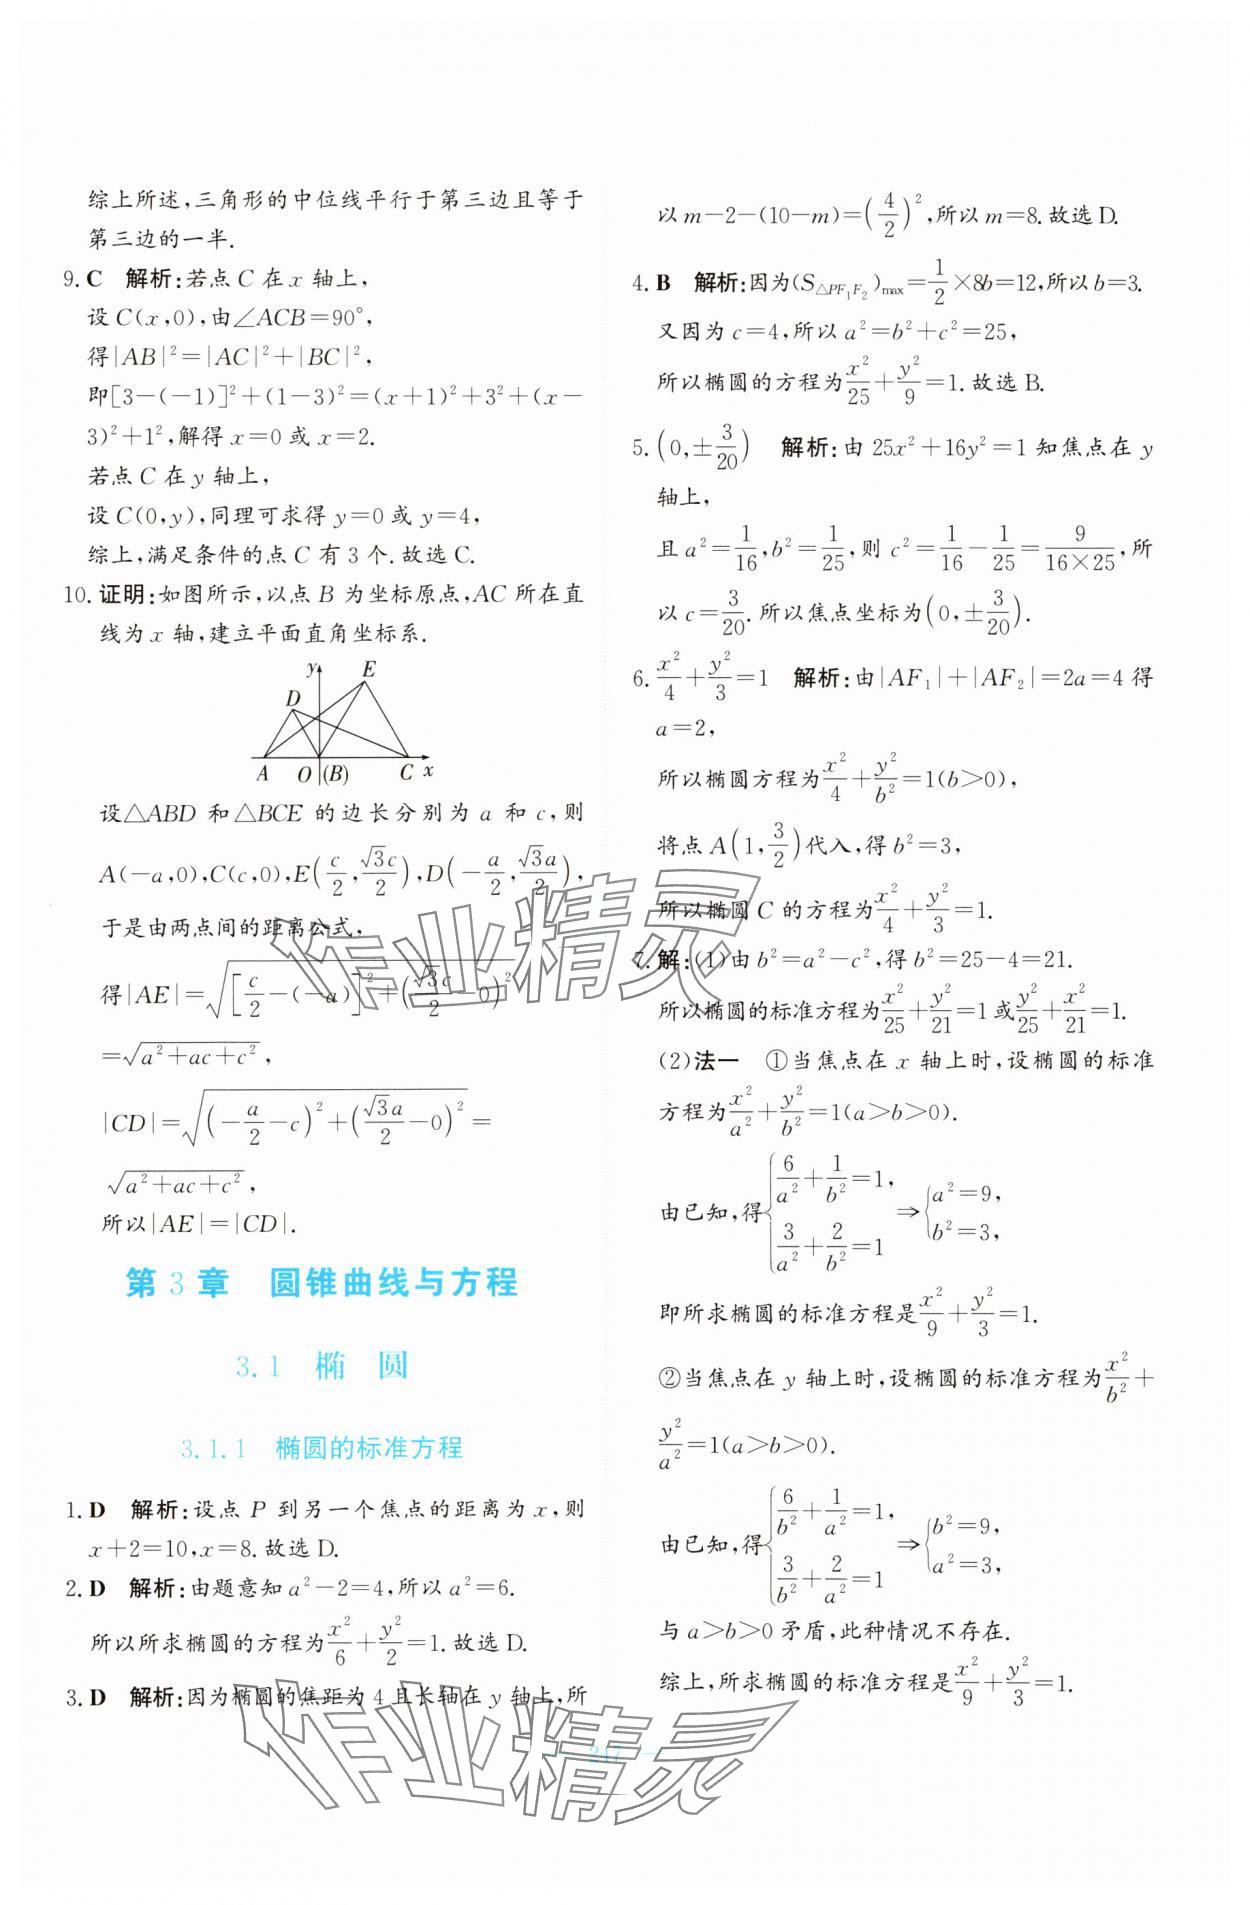 综上所述,三角形的中位线平行于第三边且等于
第三边的一半.
9. C 解析:若点 C 在 x 轴上,
设 C(x,0),由∠ACB=90°,
得|AB|²=|AC|²+|BC|²,
即[3-(-1)]²+(1-3)²=(x+1)²+3²+(x-
3)²+1²,解得 x=0 或 x=2.
若点 C 在 y 轴上,
设 C(0,y),同理可求得 y=0 或 y=4,
综上,满足条件的点 C 有 3 个.故选 C.
10. 证明:如图所示,以点 B 为坐标原点,AC 所在直
线为 x 轴,建立平面直角坐标系.
y E
D
A O (B) C x
设△ABD 和△BCE 的边长分别为 a 和 c,则
A(-a,0),C(c,0),E(c/2,√3c/2),D(-a/2,√3a/2),
于是由两点间的距离公式,
得|AE|=√([c/2-(-a)]²+(√3c/2-0)²)
=√(a²+ac+c²),
|CD|=√((-a/2-c)²+(√3a/2-0)²)=
√(a²+ac+c²),
所以|AE|=|CD|.
第 3 章 圆锥曲线与方程
3.1 椭 圆
3.1.1 椭圆的标准方程
1. D 解析:设点 P 到另一个焦点的距离为 x,则
x+2=10,x=8.故选 D.
2. D 解析:由题意知 a²-2=4,所以 a²=6.
所以所求椭圆的方程为x²/6+y²/2=1.故选 D.
3. D 解析:因为椭圆的焦距为 4 且长轴在 y 轴上,所
以 m-2-(10-m)=(4/2)²,所以 m=8.故选 D.
4. B 解析:因为(S△PF₁F₂)max=1/2×8b=12,所以 b=3.
又因为 c=4,所以 a²=b²+c²=25,
所以椭圆的方程为x²/25+y²/9=1.故选 B.
5. (0,±3/20) 解析:由 25x²+16y²=1 知焦点在 y
轴上,
且 a²=1/16,b²=1/25,则 c²=1/16-1/25=9/(16×25),所
以 c=3/20.所以焦点坐标为(0,±3/20).
6. x²/4+y²/3=1 解析:由|AF₁|+|AF₂|=2a=4 得
a=2,
所以椭圆方程为x²/4+y²/b²=1(b>0),
将点 A(1,3/2)代入,得 b²=3,
所以椭圆 C 的方程为x²/4+y²/3=1.
7. 解:(1)由 b²=a²-c²,得 b²=25-4=21.
所以椭圆的标准方程为x²/25+y²/21=1 或y²/25+x²/21=1.
(2)法一 ①当焦点在 x 轴上时,设椭圆的标准
方程为x²/a²+y²/b²=1(a>b>0).
由已知,得{6/a²+1/b²=1, 3/a²+2/b²=1 ⇒{a²=9, b²=3,
即所求椭圆的标准方程是x²/9+y²/3=1.
②当焦点在 y 轴上时,设椭圆的标准方程为x²/b²+
y²/a²=1(a>b>0).
由已知,得{6/b²+1/a²=1, 3/b²+2/a²=1 ⇒{b²=9, a²=3,
与 a>b>0 矛盾,此种情况不存在.
综上,所求椭圆的标准方程是x²/9+y²/3=1.
247
作业精灵
作业精灵